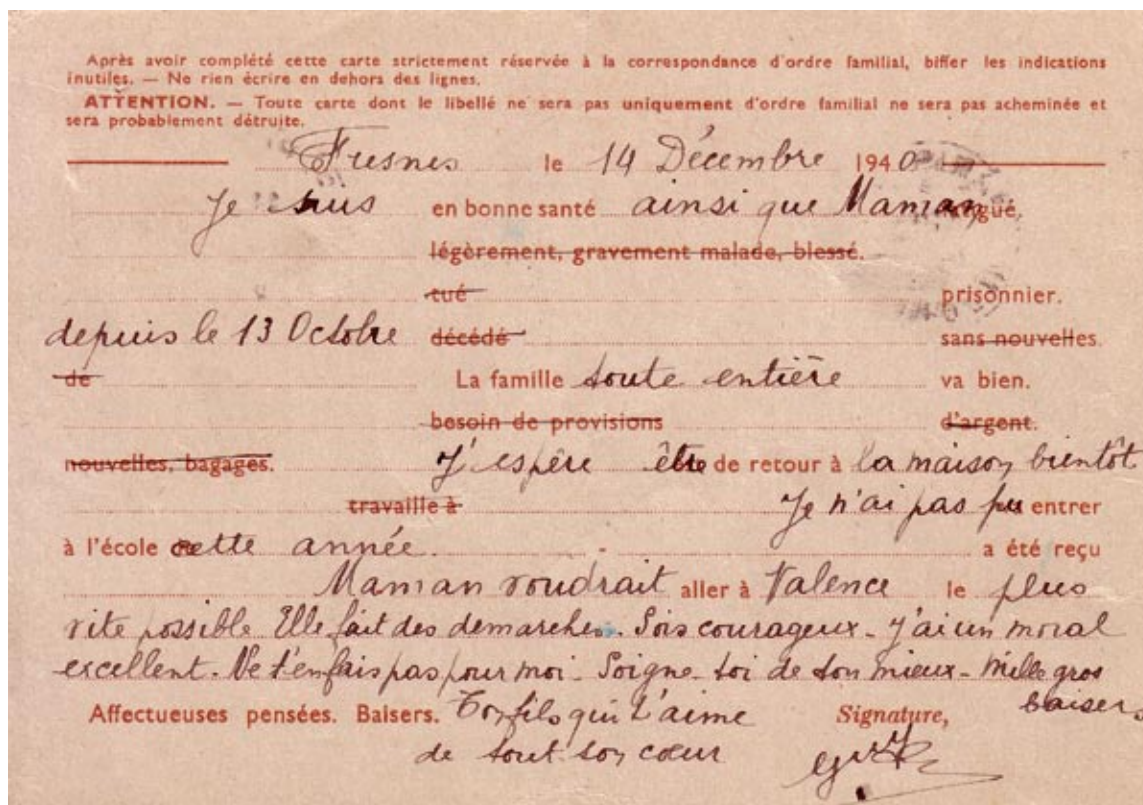 Après avoir complété cette carte strictement réservée à la correspondance d'ordre familial, biffer les indications
inutiles. — Ne rien écrire en dehors des lignes.
ATTENTION. — Toute carte dont le libellé ne sera pas uniquement d'ordre familial ne sera pas acheminée et
sera probablement détruite.
Fresnes le 14 Décembre 1940
Je suis en bonne santé ainsi que Maman fatigué.
légèrement, gravement malade, blessé.
tué prisonnier.
depuis le 13 Octobre décédé sans nouvelles.
de La famille toute entière va bien.
besoin de provisions d'argent.
nouvelles, bagages. J'espère être de retour à la maison bientôt
travaille à Je n'ai pas pu entrer
à l'école cette année. a été reçu
Maman voudrait aller à Valence le plus
vite possible Elle fait des demarches. Sois courageux - j'ai un moral
excellent. Ne t'en fais pas pour moi. Soigne-toi de ton mieux - Mille gros
baisers
Affectueuses pensées. Baisers. Ton fils qui t'aime Signature,
de tout son cœur